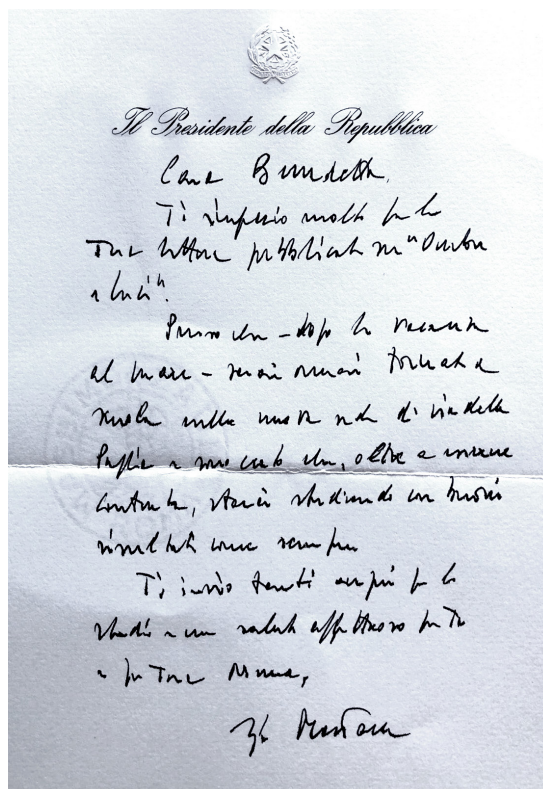 Il Presidente della Repubblica
Cara Benedetta,
Ti ringrazio molto per la
Tua lettera pubblicata su "Ombre
e luci".
Penso che – dopo la vacanza
al mare – sarai ormai tornata a
scuola nella nuova sede di via della
Paglia e sono certo che, oltre a essere
contenta, starai studiando con buoni
risultati come sempre
Ti invio tanti auguri per lo
studio e un saluto affettuoso per Te
e per Tua Mamma,